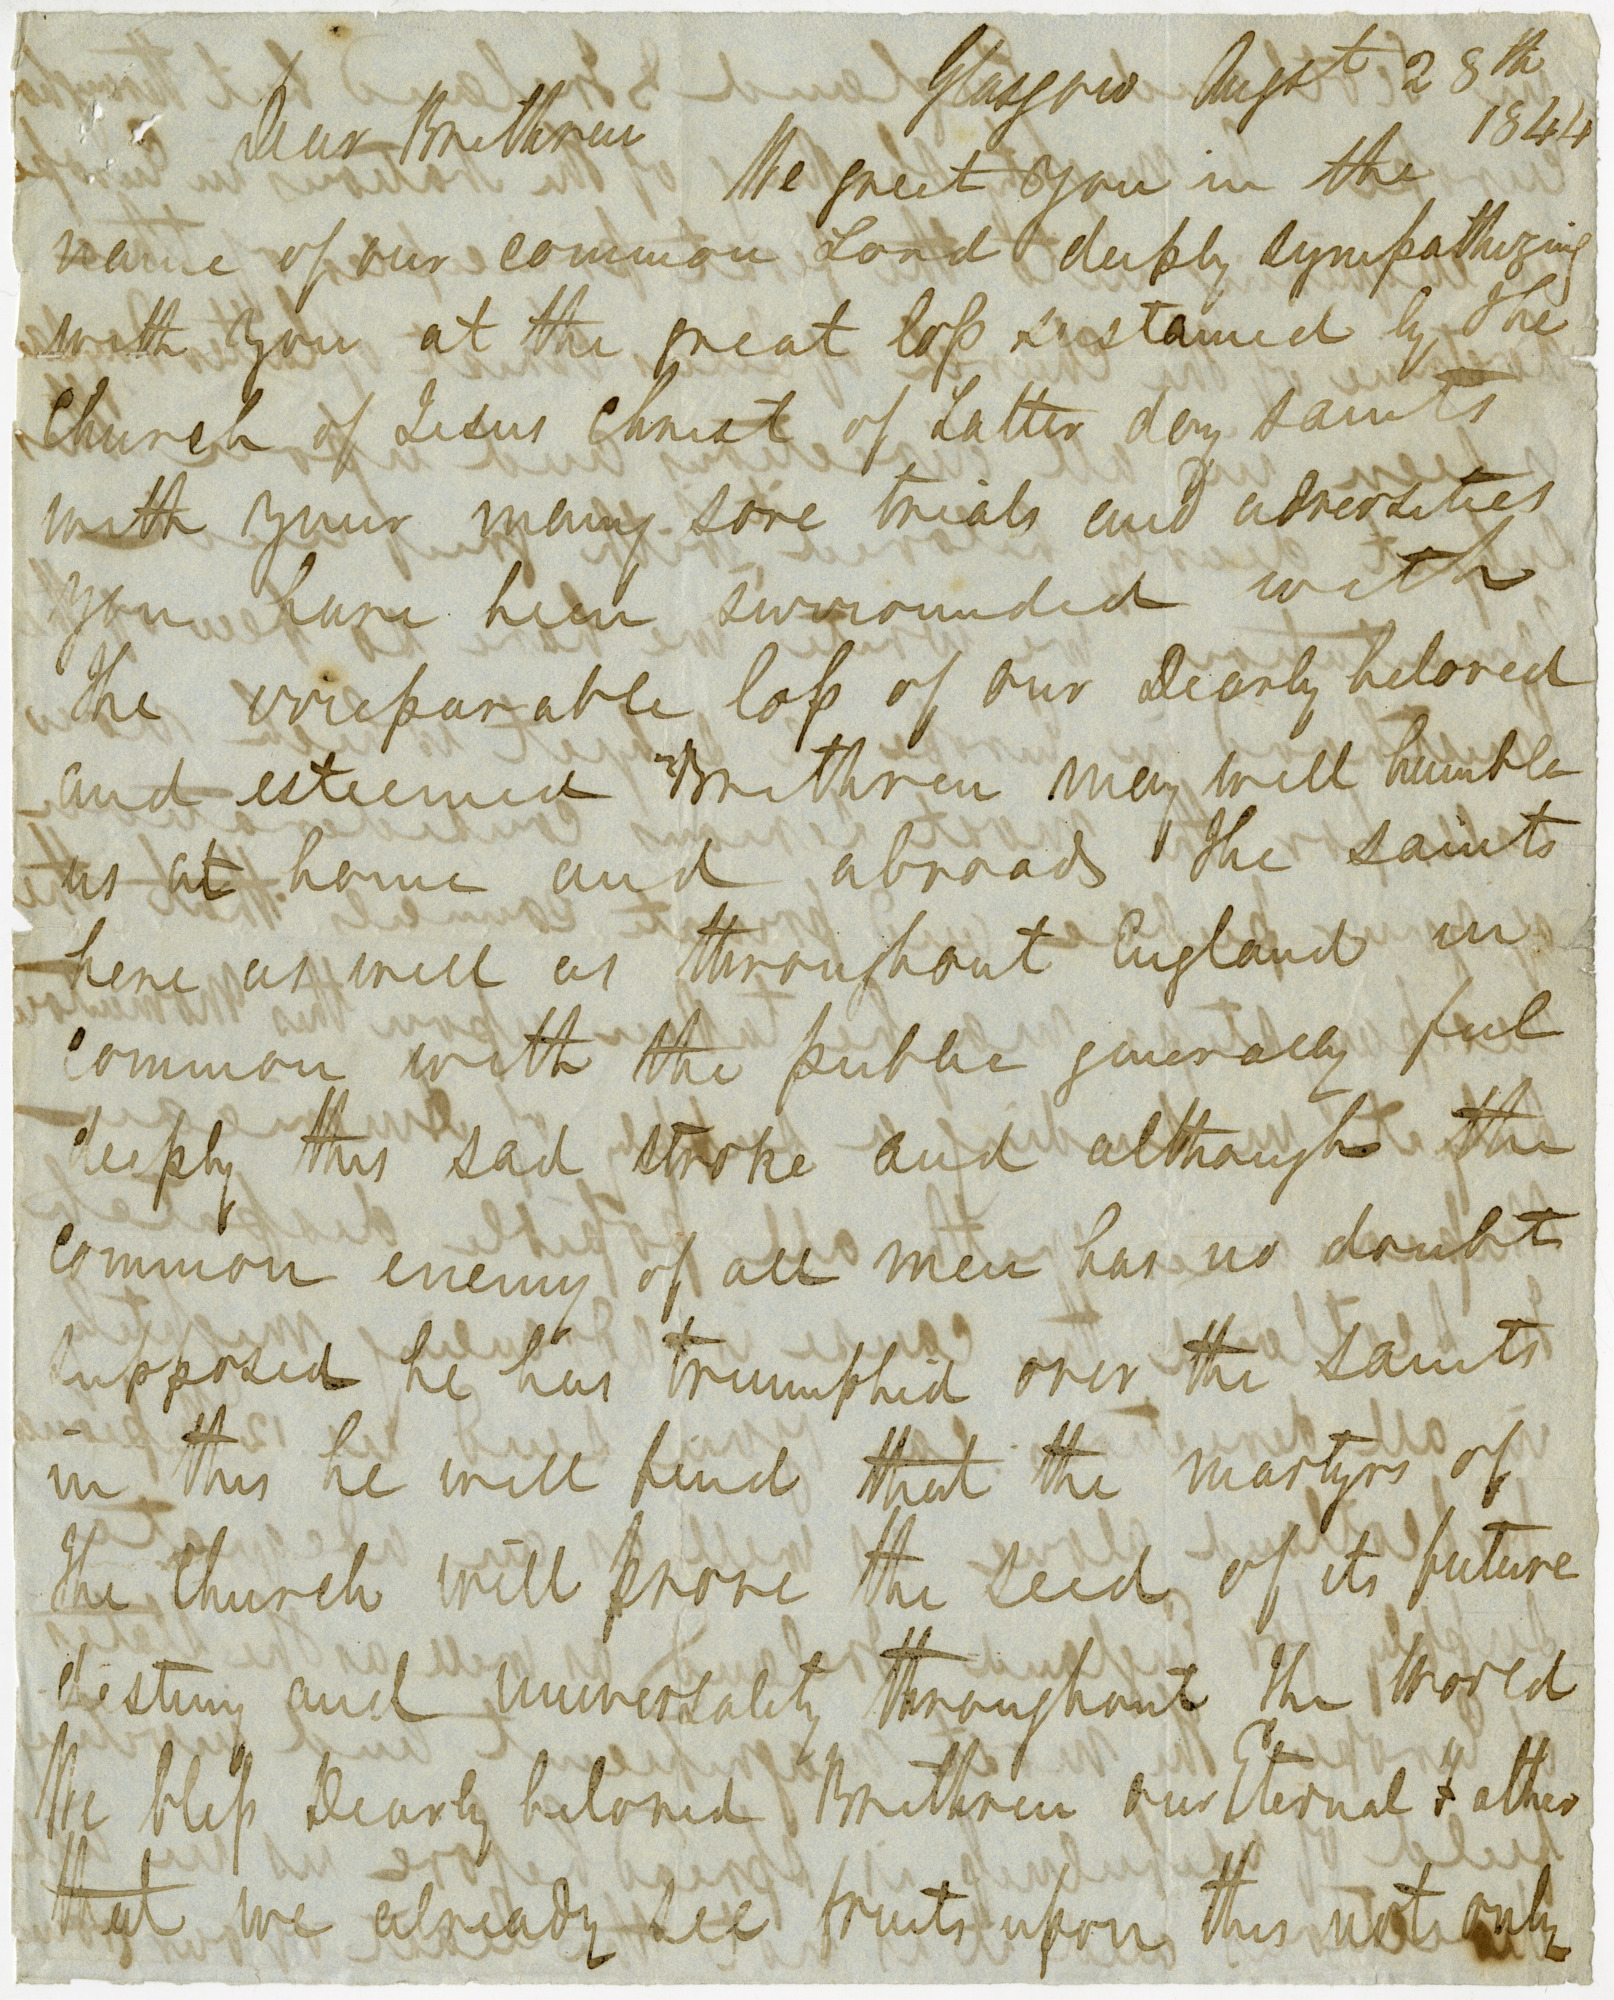 Glasgow Augst 28th
1844
Dear Brethren
We greet you in the
name of our common Lord deeply sympathizing
with you at the great loss sustained by the
Church of Jesus Christ of Latter day saints
with your many sore trials and adversities
you have been surrounded with
the irreparable loss of our Dearly beloved
and esteemed Brethren may well humble
us at home and abroad the saints
here as well as throughout England in
common with the public generally feel
deeply this sad stroke and although the
common enemy of all men has no doubt
supposed he has triumphed over the saints
in this he will find that the martyrs of
the Church will prove the seed of its future
destiny and universality throughout the world
We bless Dearly beloved Brethren our Eternal Father
that we already see fruits upon this not only